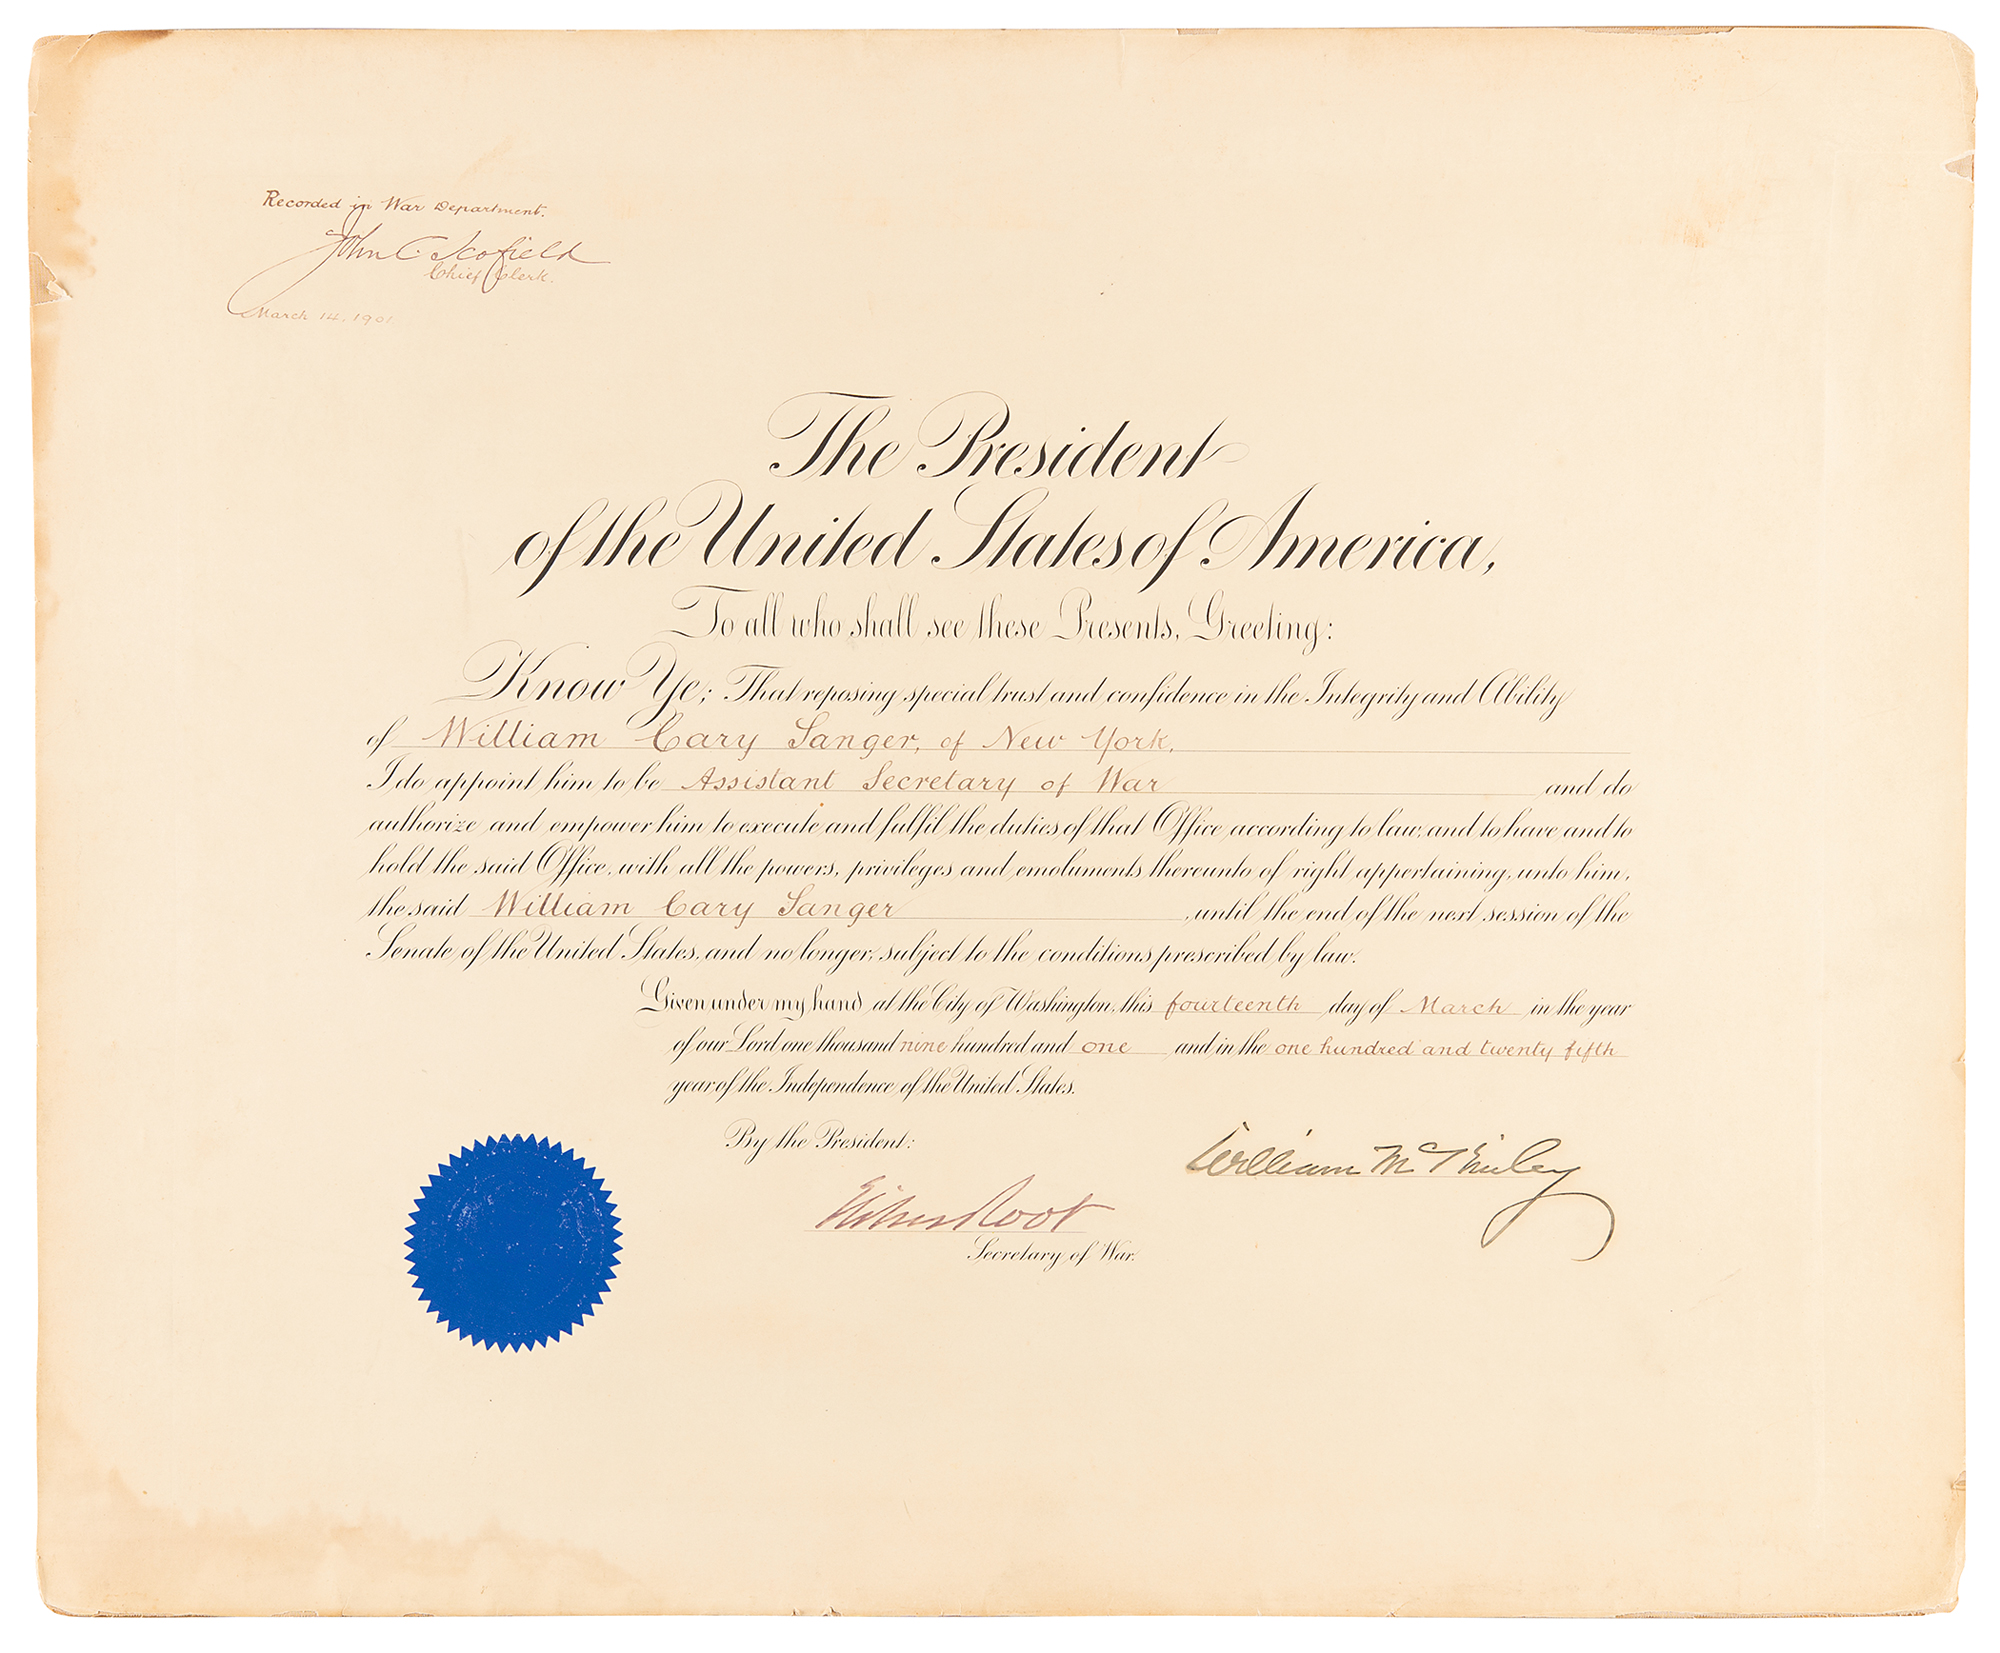 Recorded in War Department.
John C. Scofield
Chief Clerk.
March 14, 1901
The President
of the United States of America,
To all who shall see these Presents, Greeting:
Know Ye; That reposing special trust and confidence in the Integrity and Ability
of William Cary Sanger, of New York,
I do appoint him to be Assistant Secretary of War and do
authorize and empower him to execute and fulfil the duties of that Office according to law, and to have and to
hold the said Office, with all the powers, privileges and emoluments thereunto of right appertaining, unto him,
the said William Cary Sanger, until the end of the next session of the
Senate of the United States, and no longer, subject to the conditions prescribed by law.
Given under my hand at the City of Washington, this fourteenth day of March in the year
of our Lord one thousand nine hundred and one and in the one hundred and twenty fifth
year of the Independence of the United States.
By the President:
William McKinley
Elihu Root
Secretary of War.